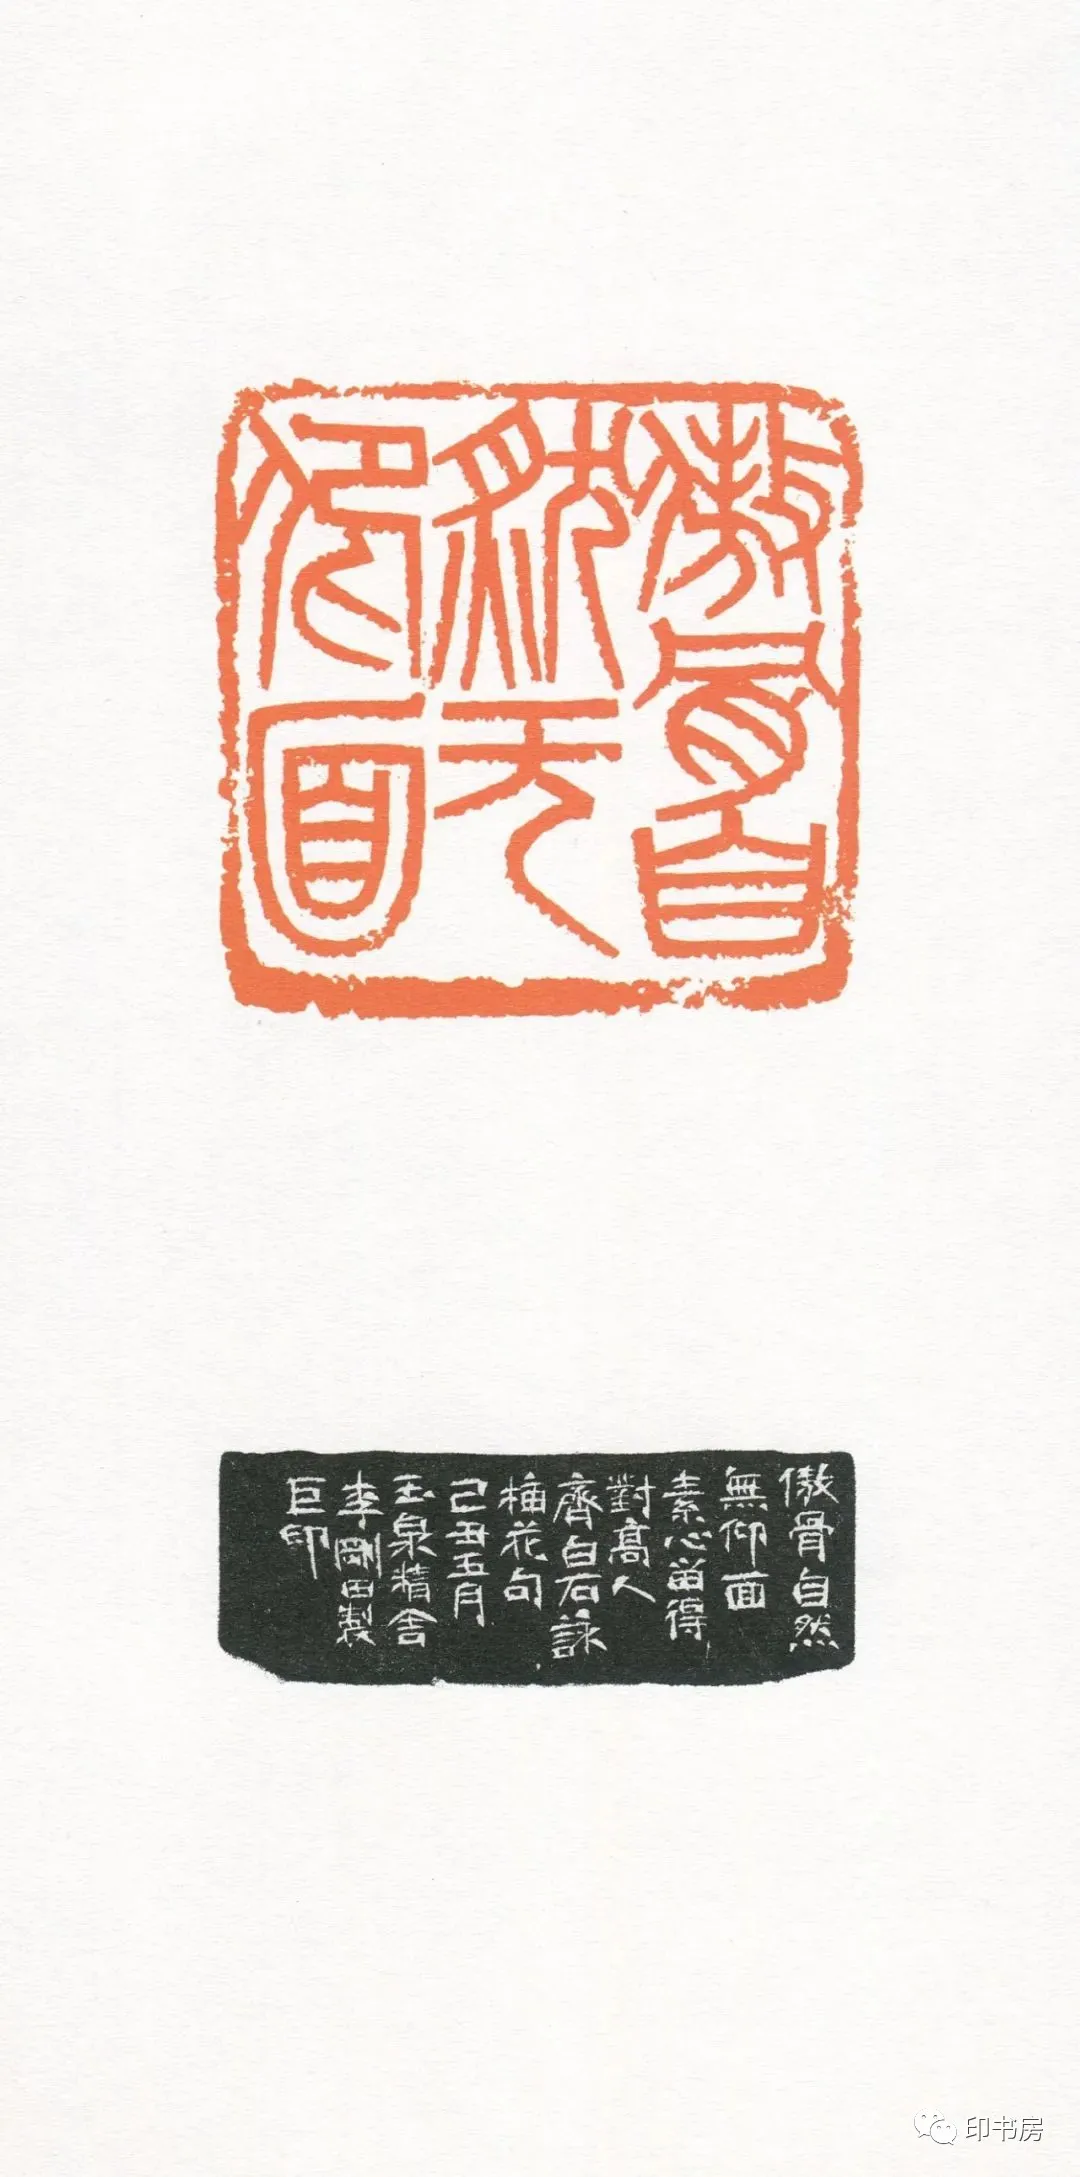 傲骨自
然无
仰面
傲骨自然
無仰面
素心留得
對高人
齊白石詠
梅花句
己丑五月
玉泉精舍
李剛田製
巨印
印书房